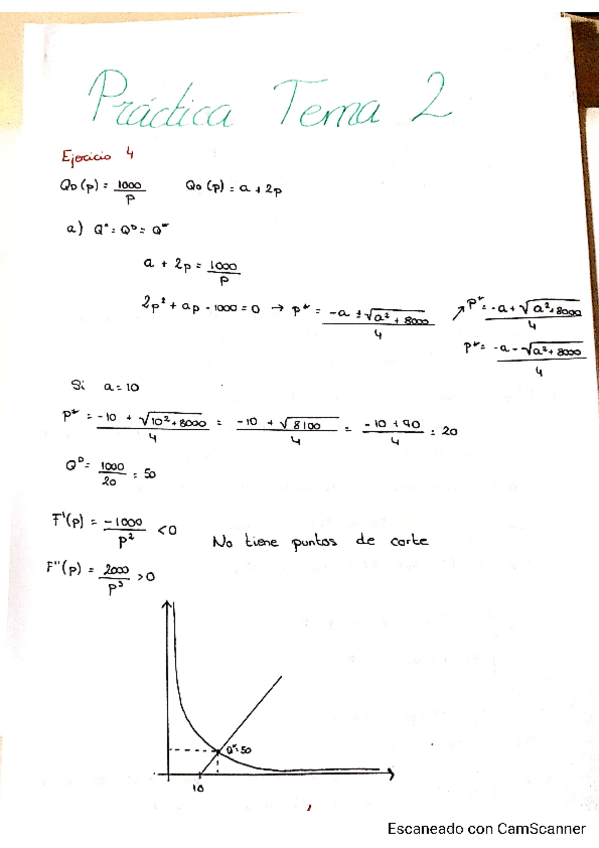 Práctica Tema 2
Ejercicio 4
Q_D(p) = 1000/p    Q_o(p) = a + 2p
a) Q^o = Q^D = Q^*
a + 2p = 1000/p
2p² + ap - 1000 = 0 → p* = (-a ± √(a² + 8000))/4 ↗ p* = (-a + √(a² + 8000))/4
p* = (-a - √(a² + 8000))/4
Si a = 10
p* = (-10 + √(10² + 8000))/4 = (-10 + √8100)/4 = (-10 + 90)/4 = 20
Q^D = 1000/20 = 50
F'(p) = -1000/p² < 0    No tiene puntos de corte
F''(p) = 2000/p³ > 0
Q* = 50
10
Escaneado con CamScanner